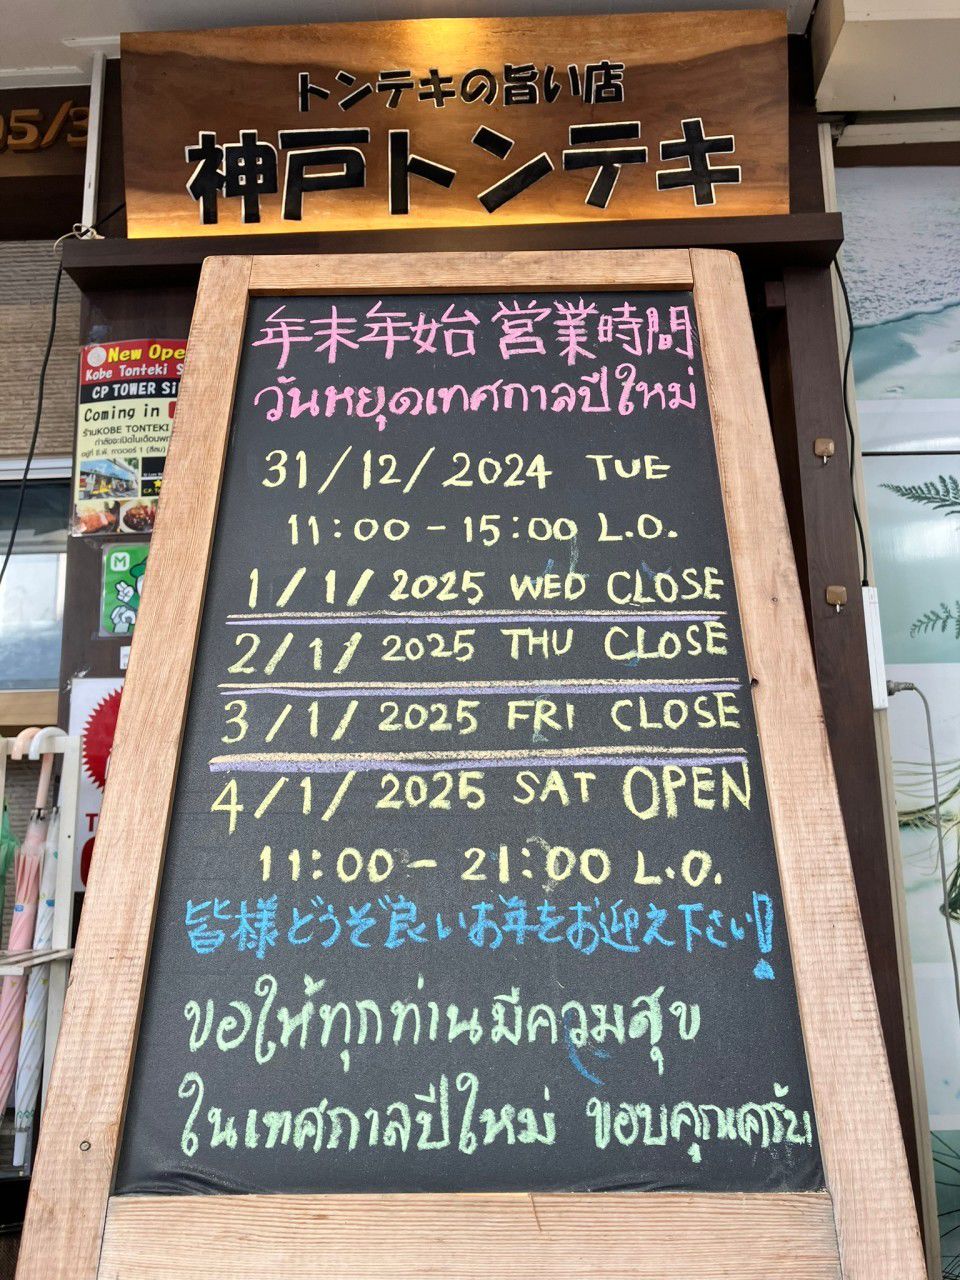 トンテキの旨い店
神戸トンテキ
05/3
New Ope
Kobe Tonteki S
CP TOWER Si
Coming in
ร้านKOBE TONTEKI
กำลังจะเปิดในเดือนพฤ
อยู่ที่ ซี.พี. ทาวเวอร์ 1 (สีลม)
M
年末年始 営業時間
วันหยุดเทศกาลปีใหม่
31/12/2024 TUE
11:00 - 15:00 L.O.
1/1/2025 WED CLOSE
2/1/2025 THU CLOSE
3/1/2025 FRI CLOSE
4/1/2025 SAT OPEN
11:00 - 21:00 L.O.
皆様どうぞ良いお年をお迎え下さい!
ขอให้ทุกท่านมีความสุข
ในเทศกาลปีใหม่ ขอบคุณครับ